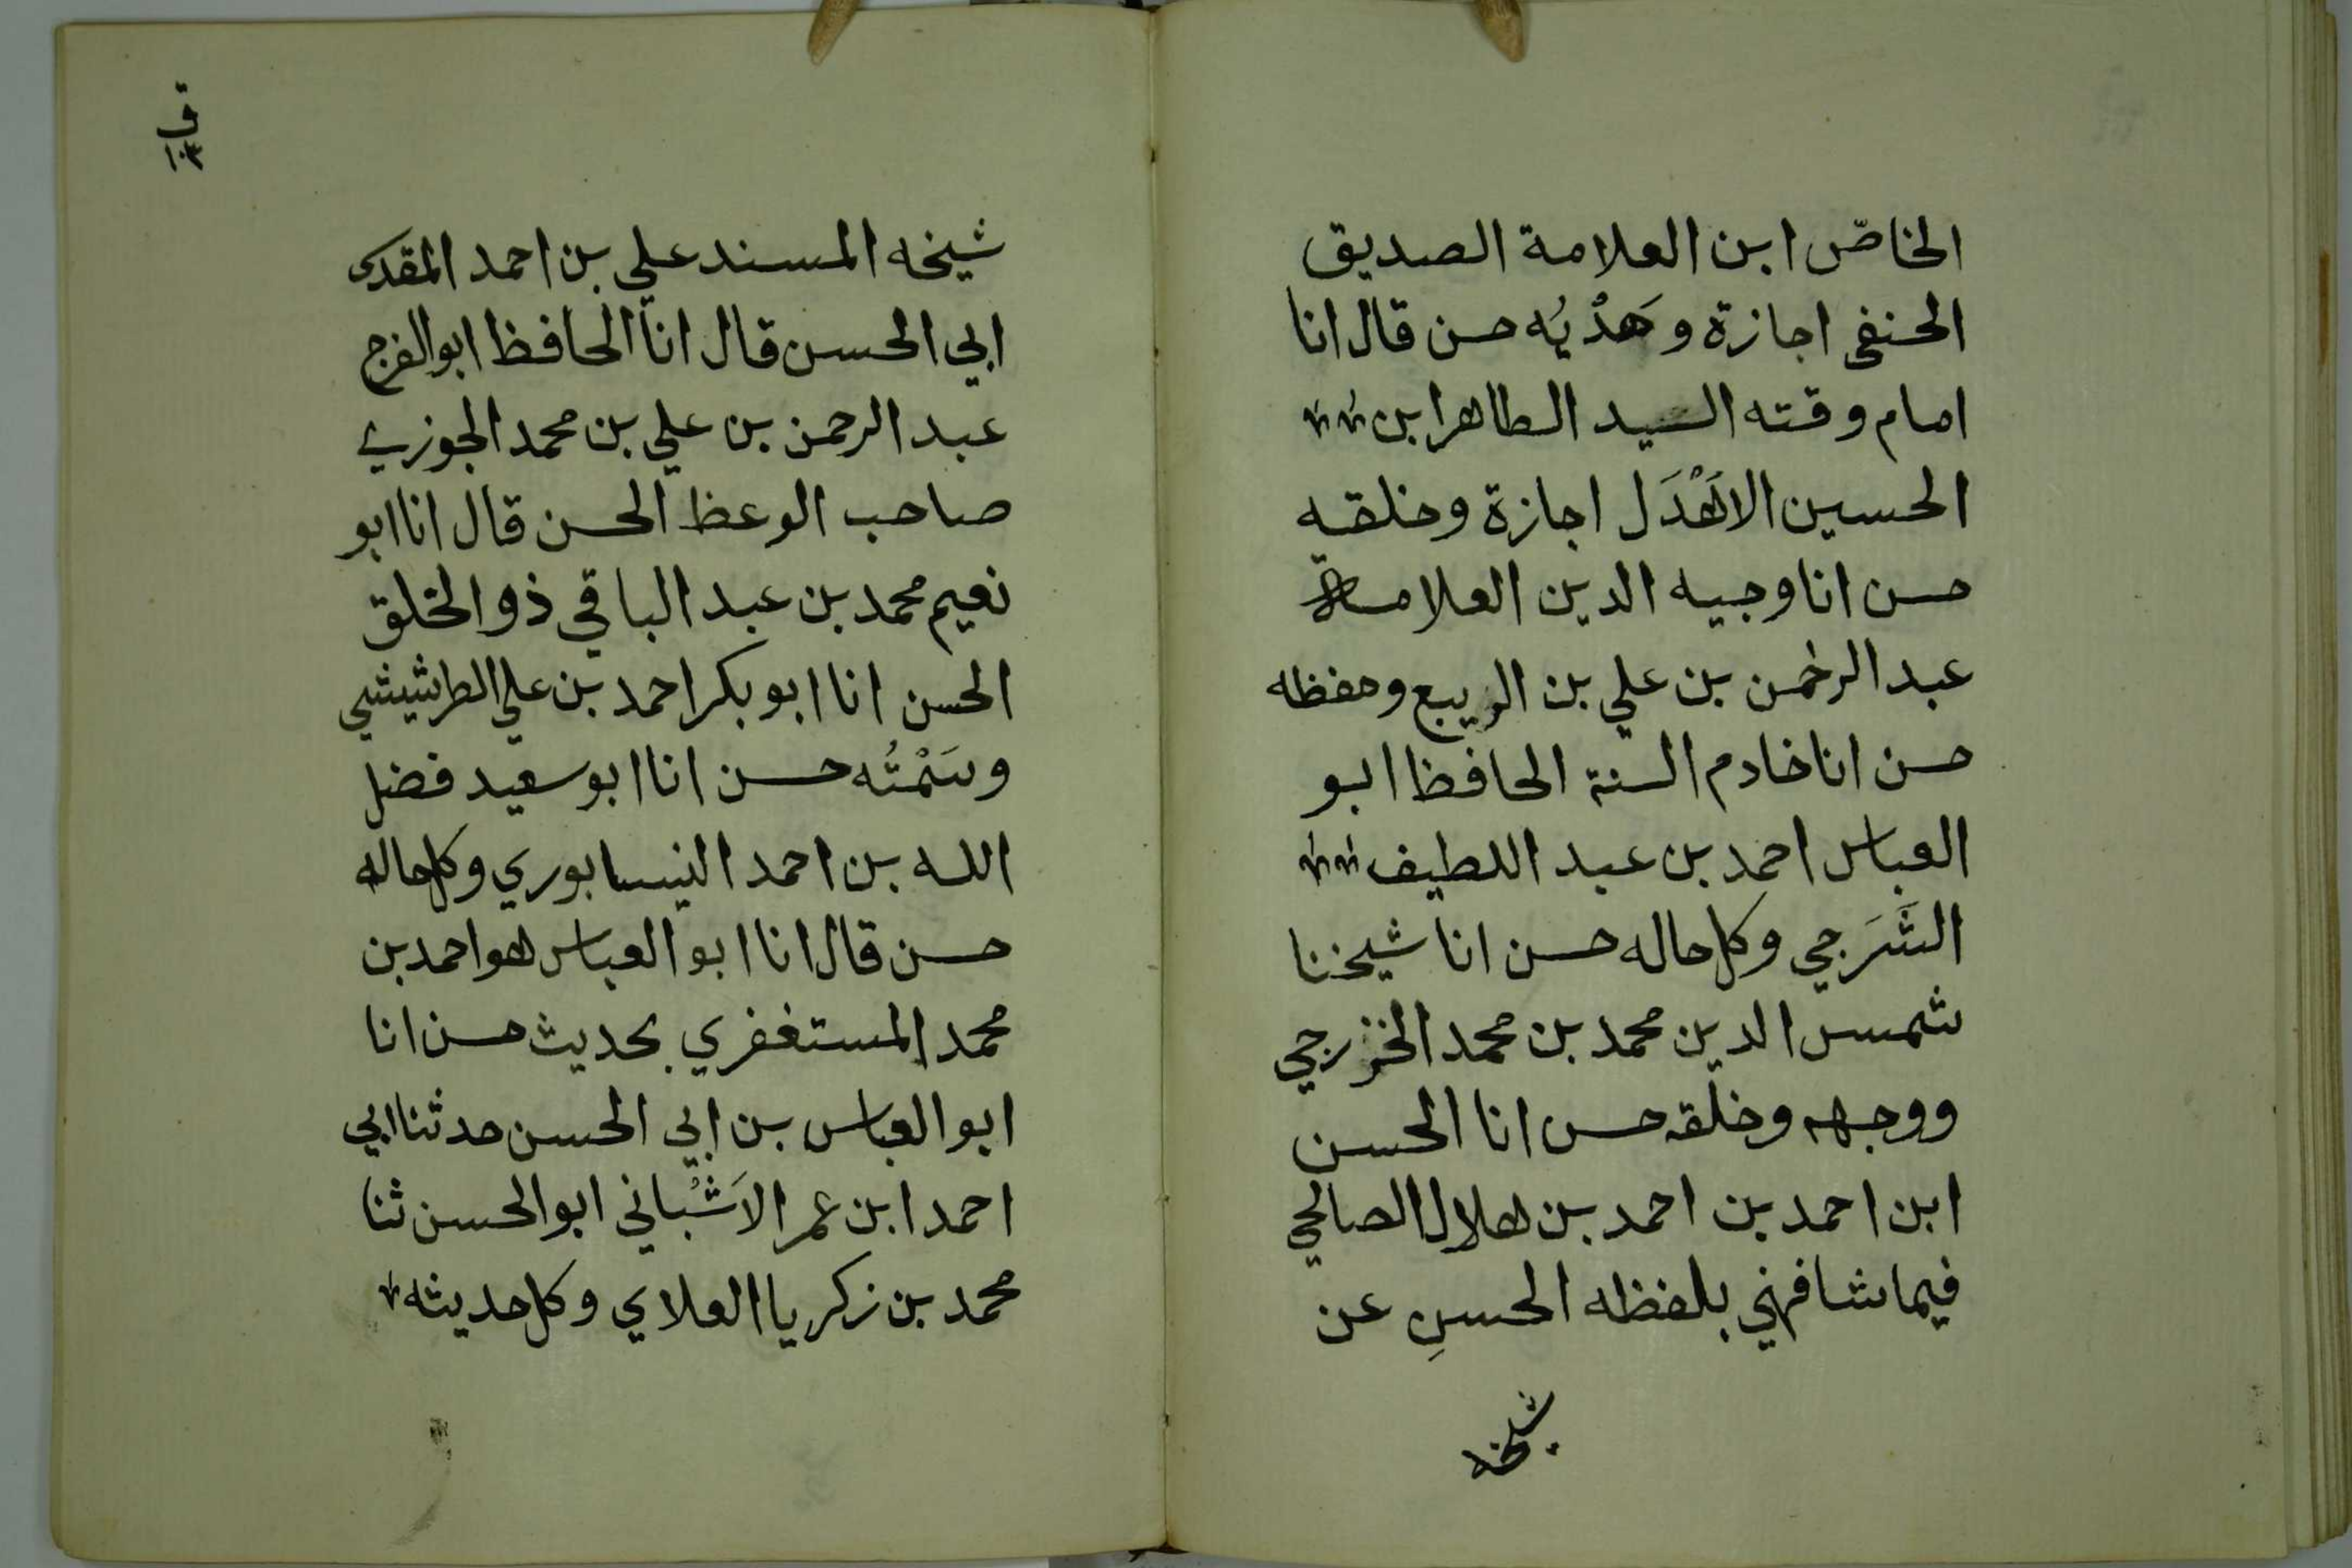 الخاصّ ابن العلامة الصديق
الحنفي اجازة وهَدْيُه حسن قال انا
امام وقته السيد الطاهر ابن
الحسين الاهْدَل اجازة وخلقه
حسن انا وجيه الدين العلامة
عبد الرحمن بن علي بن الربيع وحفظه
حسن انا خادم السنة الحافظ ابو
العباس احمد بن عبد اللطيف
الشَرَجي وكل حاله حسن انا شيخنا
شمس الدين محمد بن محمد الخزرجي
ووجهه وخلقه حسن انا الحسن
ابن احمد بن احمد بن هلال الصالحي
فيما شافهني بلفظه الحسنِ عن
شيخه
ق
١٠٣
شيخه المسند علي بن احمد المقدسي
ابي الحسن قال انا الحافظ ابو الفرج
عبد الرحمن بن علي بن محمد الجوزي
صاحب الوعظ الحسن قال انا ابو
نعيم محمد بن عبد الباقي ذو الخلق
الحسن انا ابو بكر احمد بن علي الطريثيثي
وسَمْتُه حسن انا ابو سعيد فضل
الله بن احمد النيسابوري وكل حاله
حسن قال انا ابو العباس هو احمد بن
محمد المستغفري بحديث حسن انا
ابو العباس بن ابي الحسن حدثنا ابي
احمد ابن عمر الاَشْبُاني ابو الحسن ثنا
محمد بن زكريا العلاي وكل حديثه